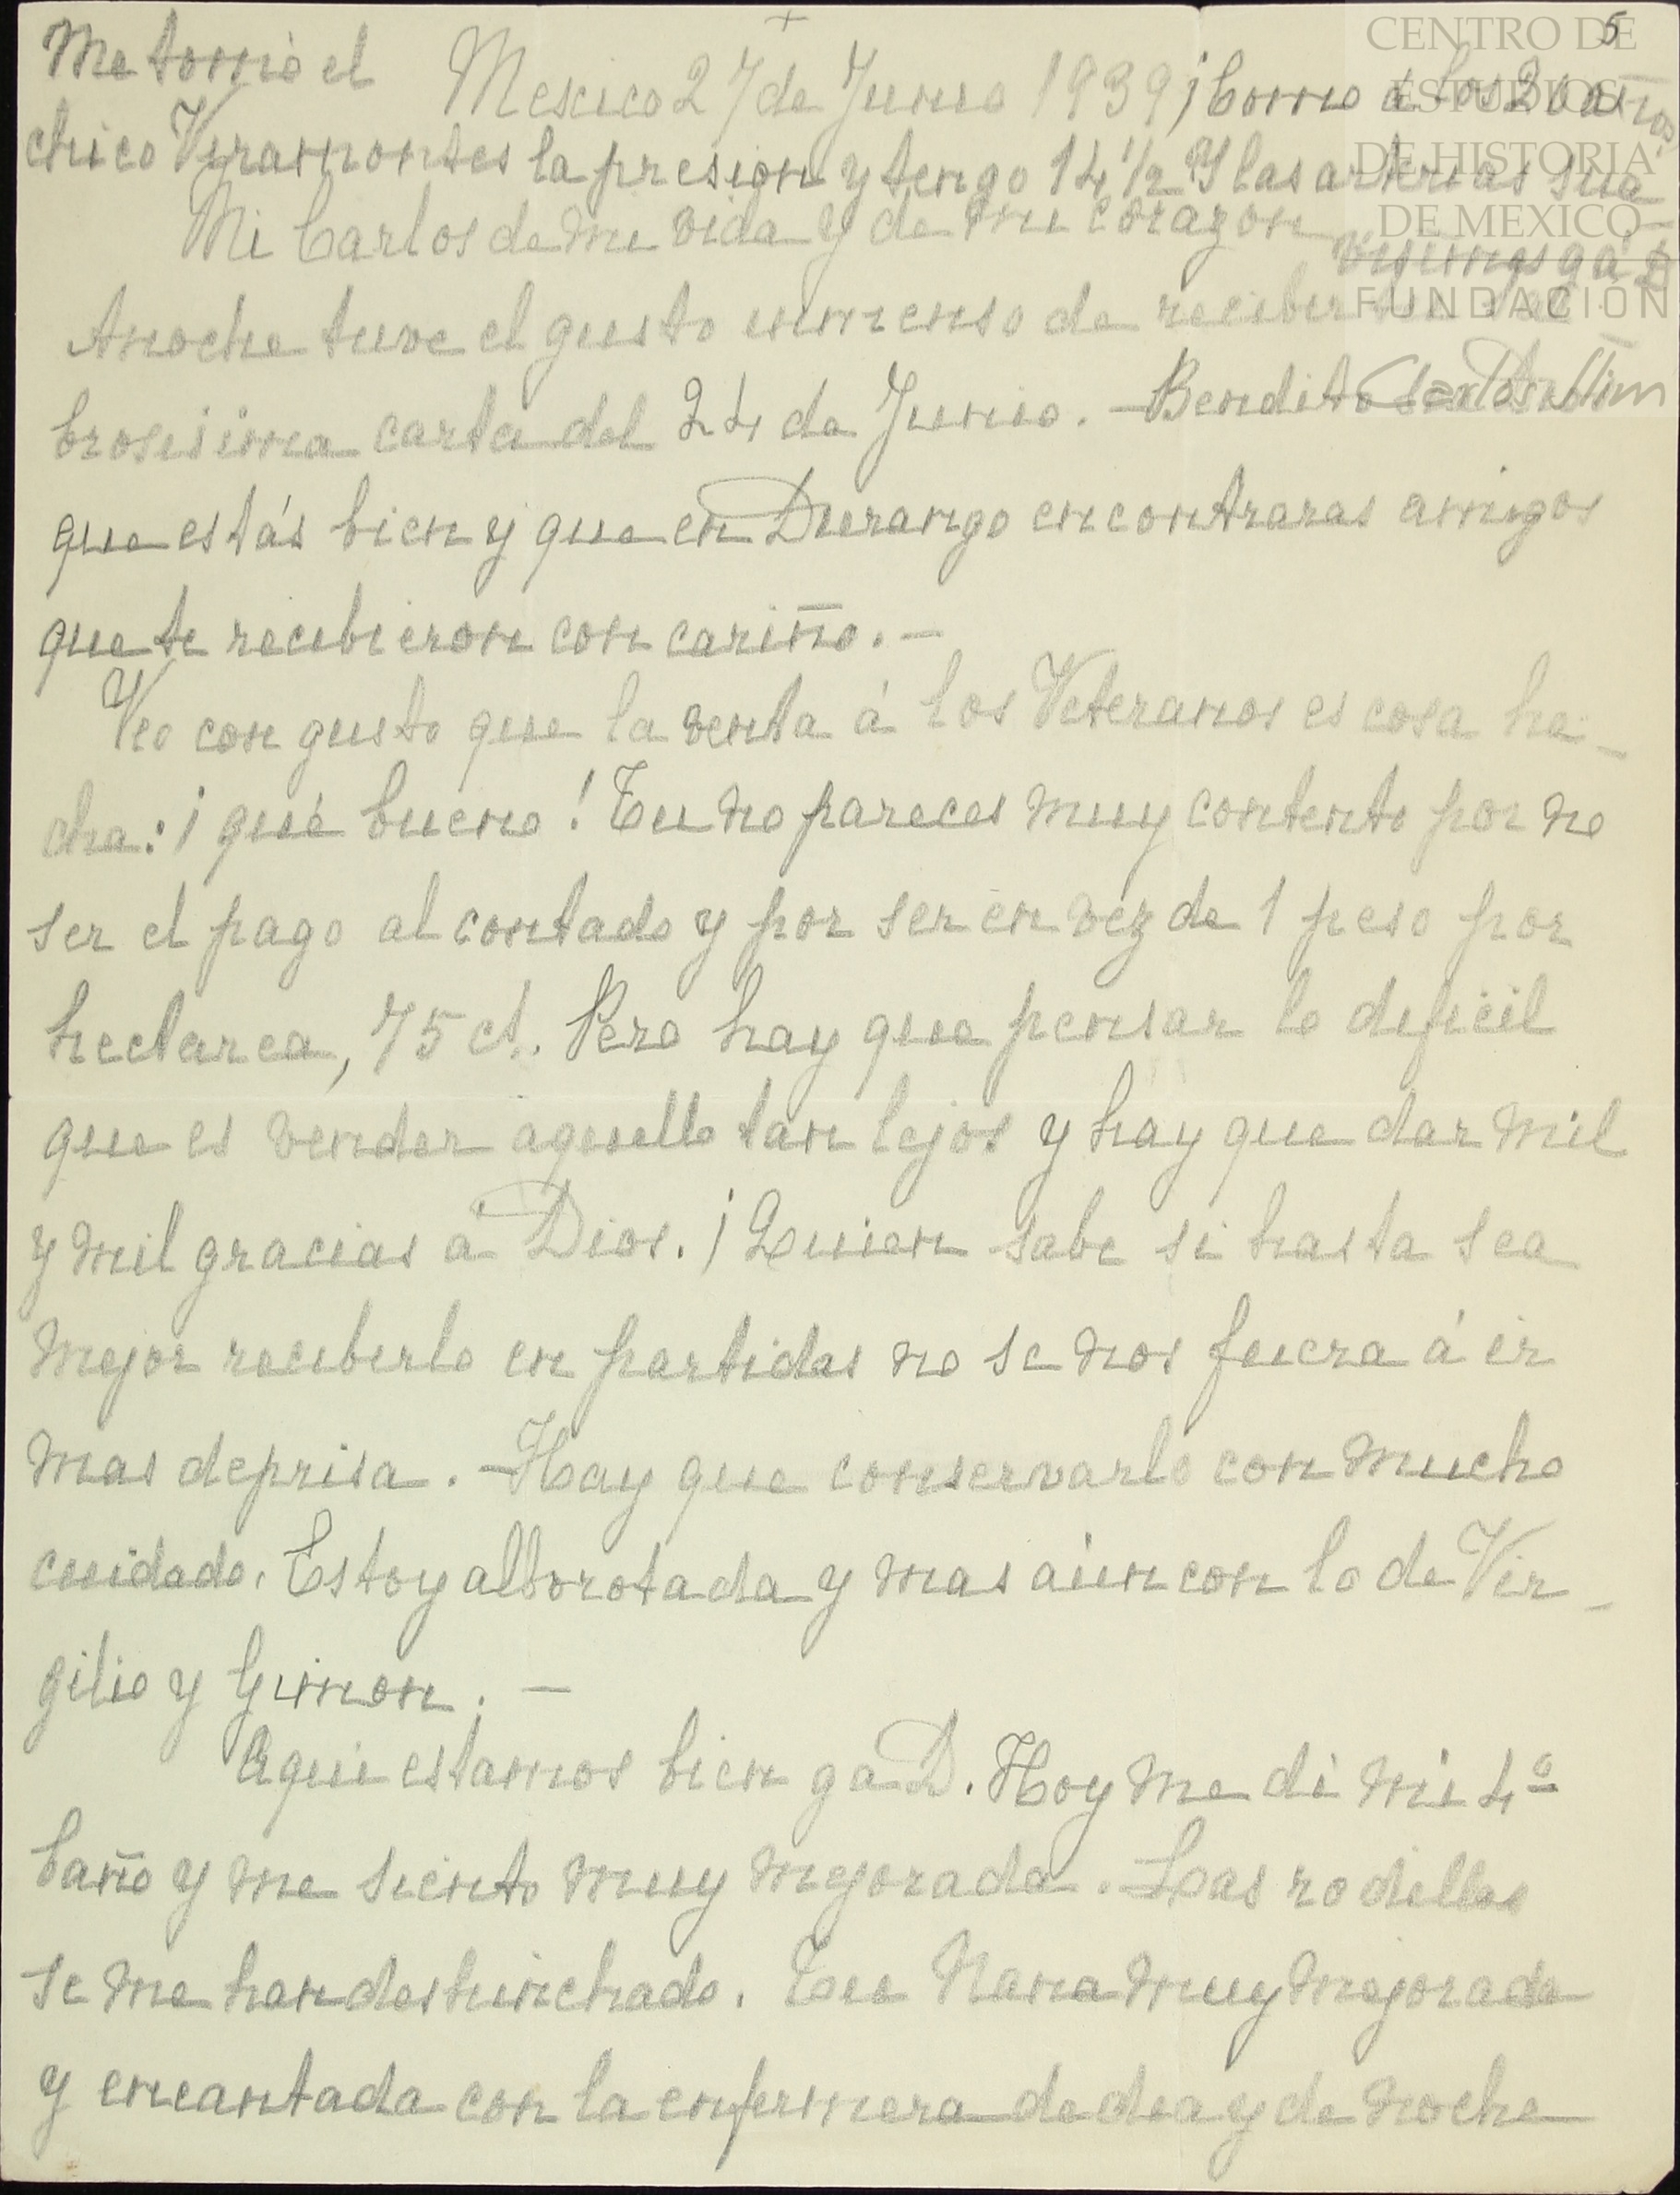 5
+
Me tomó el
Mexico 27 de Junio 1939 ¡Como a los 20 años
chico Viramontes la presion y tengo 14 1/2 Y las arterias sua
visimas g á D
Mi Carlos de mi vida y de mi corazon
Anoche tuve el gusto inmenso de recibir tu sa-
brosisima carta del 24 de Junio. - Bendito
que estás bien y que en Durango encontraras amigos
que te recibieron con cariño. -
Veo con gusto que la venta á los Veteranos es cosa he-
cha: ¡qué bueno! Tu no pareces muy contento por no
ser el pago al contado y por ser en vez de 1 peso por
hectarea, 75 ct. Pero hay que pensar lo dificil
que es vender aquello tan lejos y hay que dar mil
y mil gracias á Dios. ¡Quien sabe si hasta sea
mejor recibirlo en partidas no se nos fuera á ir
mas deprisa. - Hay que conservarlo con mucho
cuidado. Estoy alborotada y mas aún con lo de Vir-
gilio y Guinon. -
Aqui estamos bien g a D. Hoy me di mi 4º
baño y me siento muy mejorada. - Las rodillas
se me han deshinchado. Tu Nana muy mejorada
y encantada con la enfermera de dia y de noche
CENTRO DE
ESTUDIOS
DE HISTORIA
DE MEXICO
FUNDACIÓN
Carlos Slim